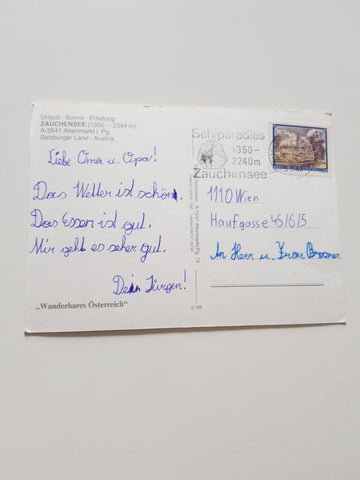 Urlaub · Sonne · Erholung
ZAUCHENSEE (1350 – 2344 m)
A-5541 Altenmarkt i. Pg.
Salzburger Land · Austria
Liebe Oma u. Opa!
Das Wetter ist schön.
Das Essen ist gut.
Mir geht es seher gut.
Dein Jürgen!
„Wanderbares Österreich"
Schiparadies
1350–
2240m
Zauchensee
1110 Wien
Haufgasse 45/6/5
An Herr u. Frau